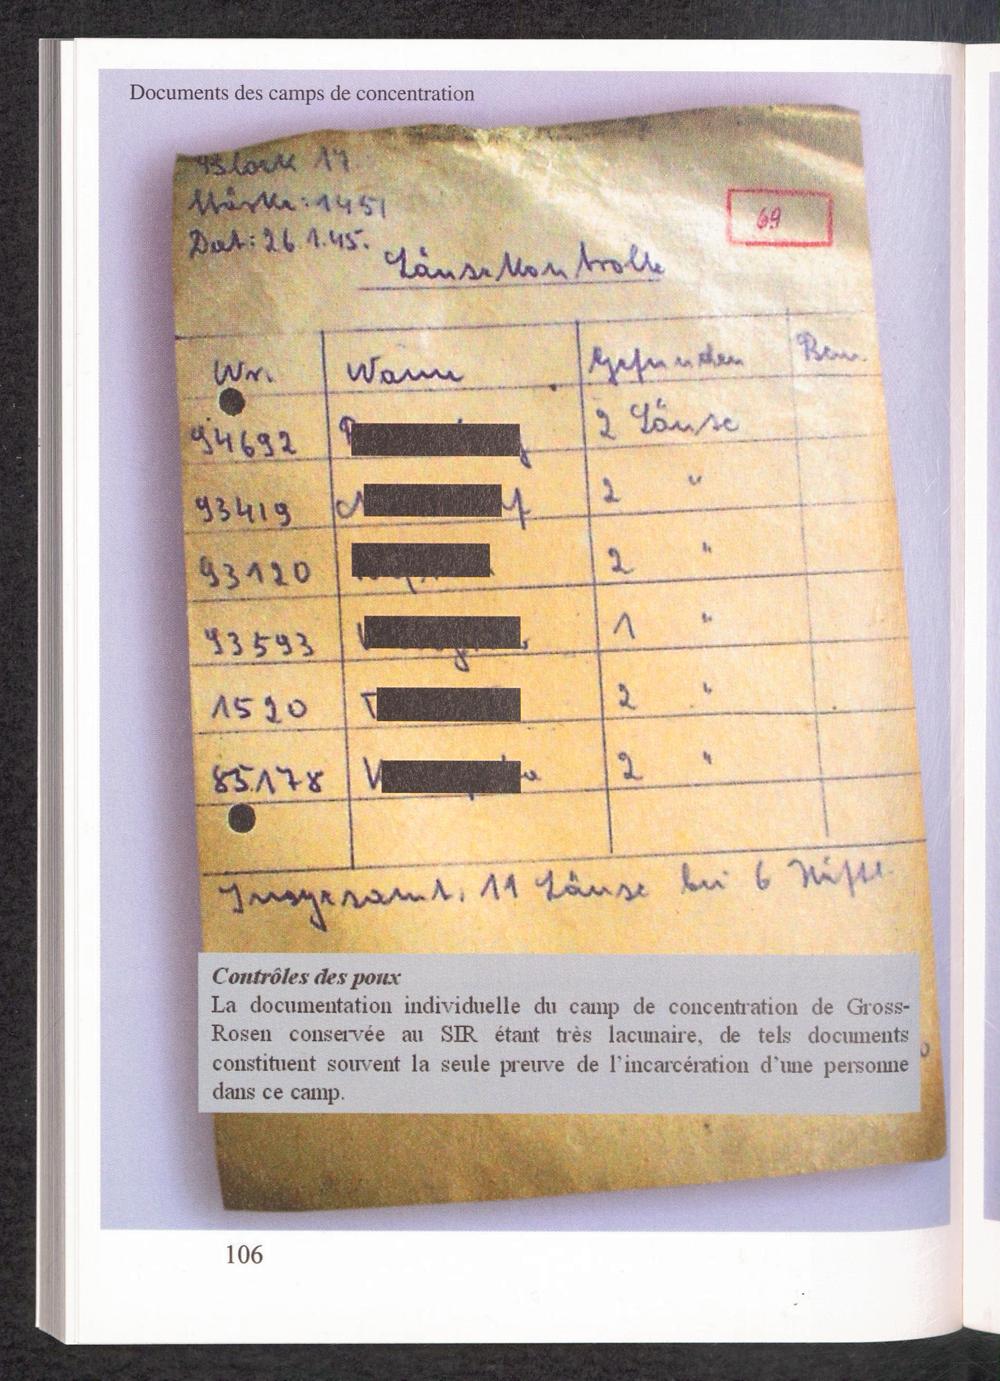 Documents des camps de concentration
Block 17
Stärke: 1451
Dat: 26.1.45.
69
Läusekontrolle
Nr. Name Gefunden Bem.
94692 2 Läuse
93419 2 "
93120 2 "
93593 1 "
1520 2 "
85178 2 "
Insgesamt: 11 Läuse bei 6 Häftl.
Contrôles des poux
La documentation individuelle du camp de concentration de Gross-
Rosen conservée au SIR étant très lacunaire, de tels documents
constituent souvent la seule preuve de l'incarcération d'une personne
dans ce camp.
106